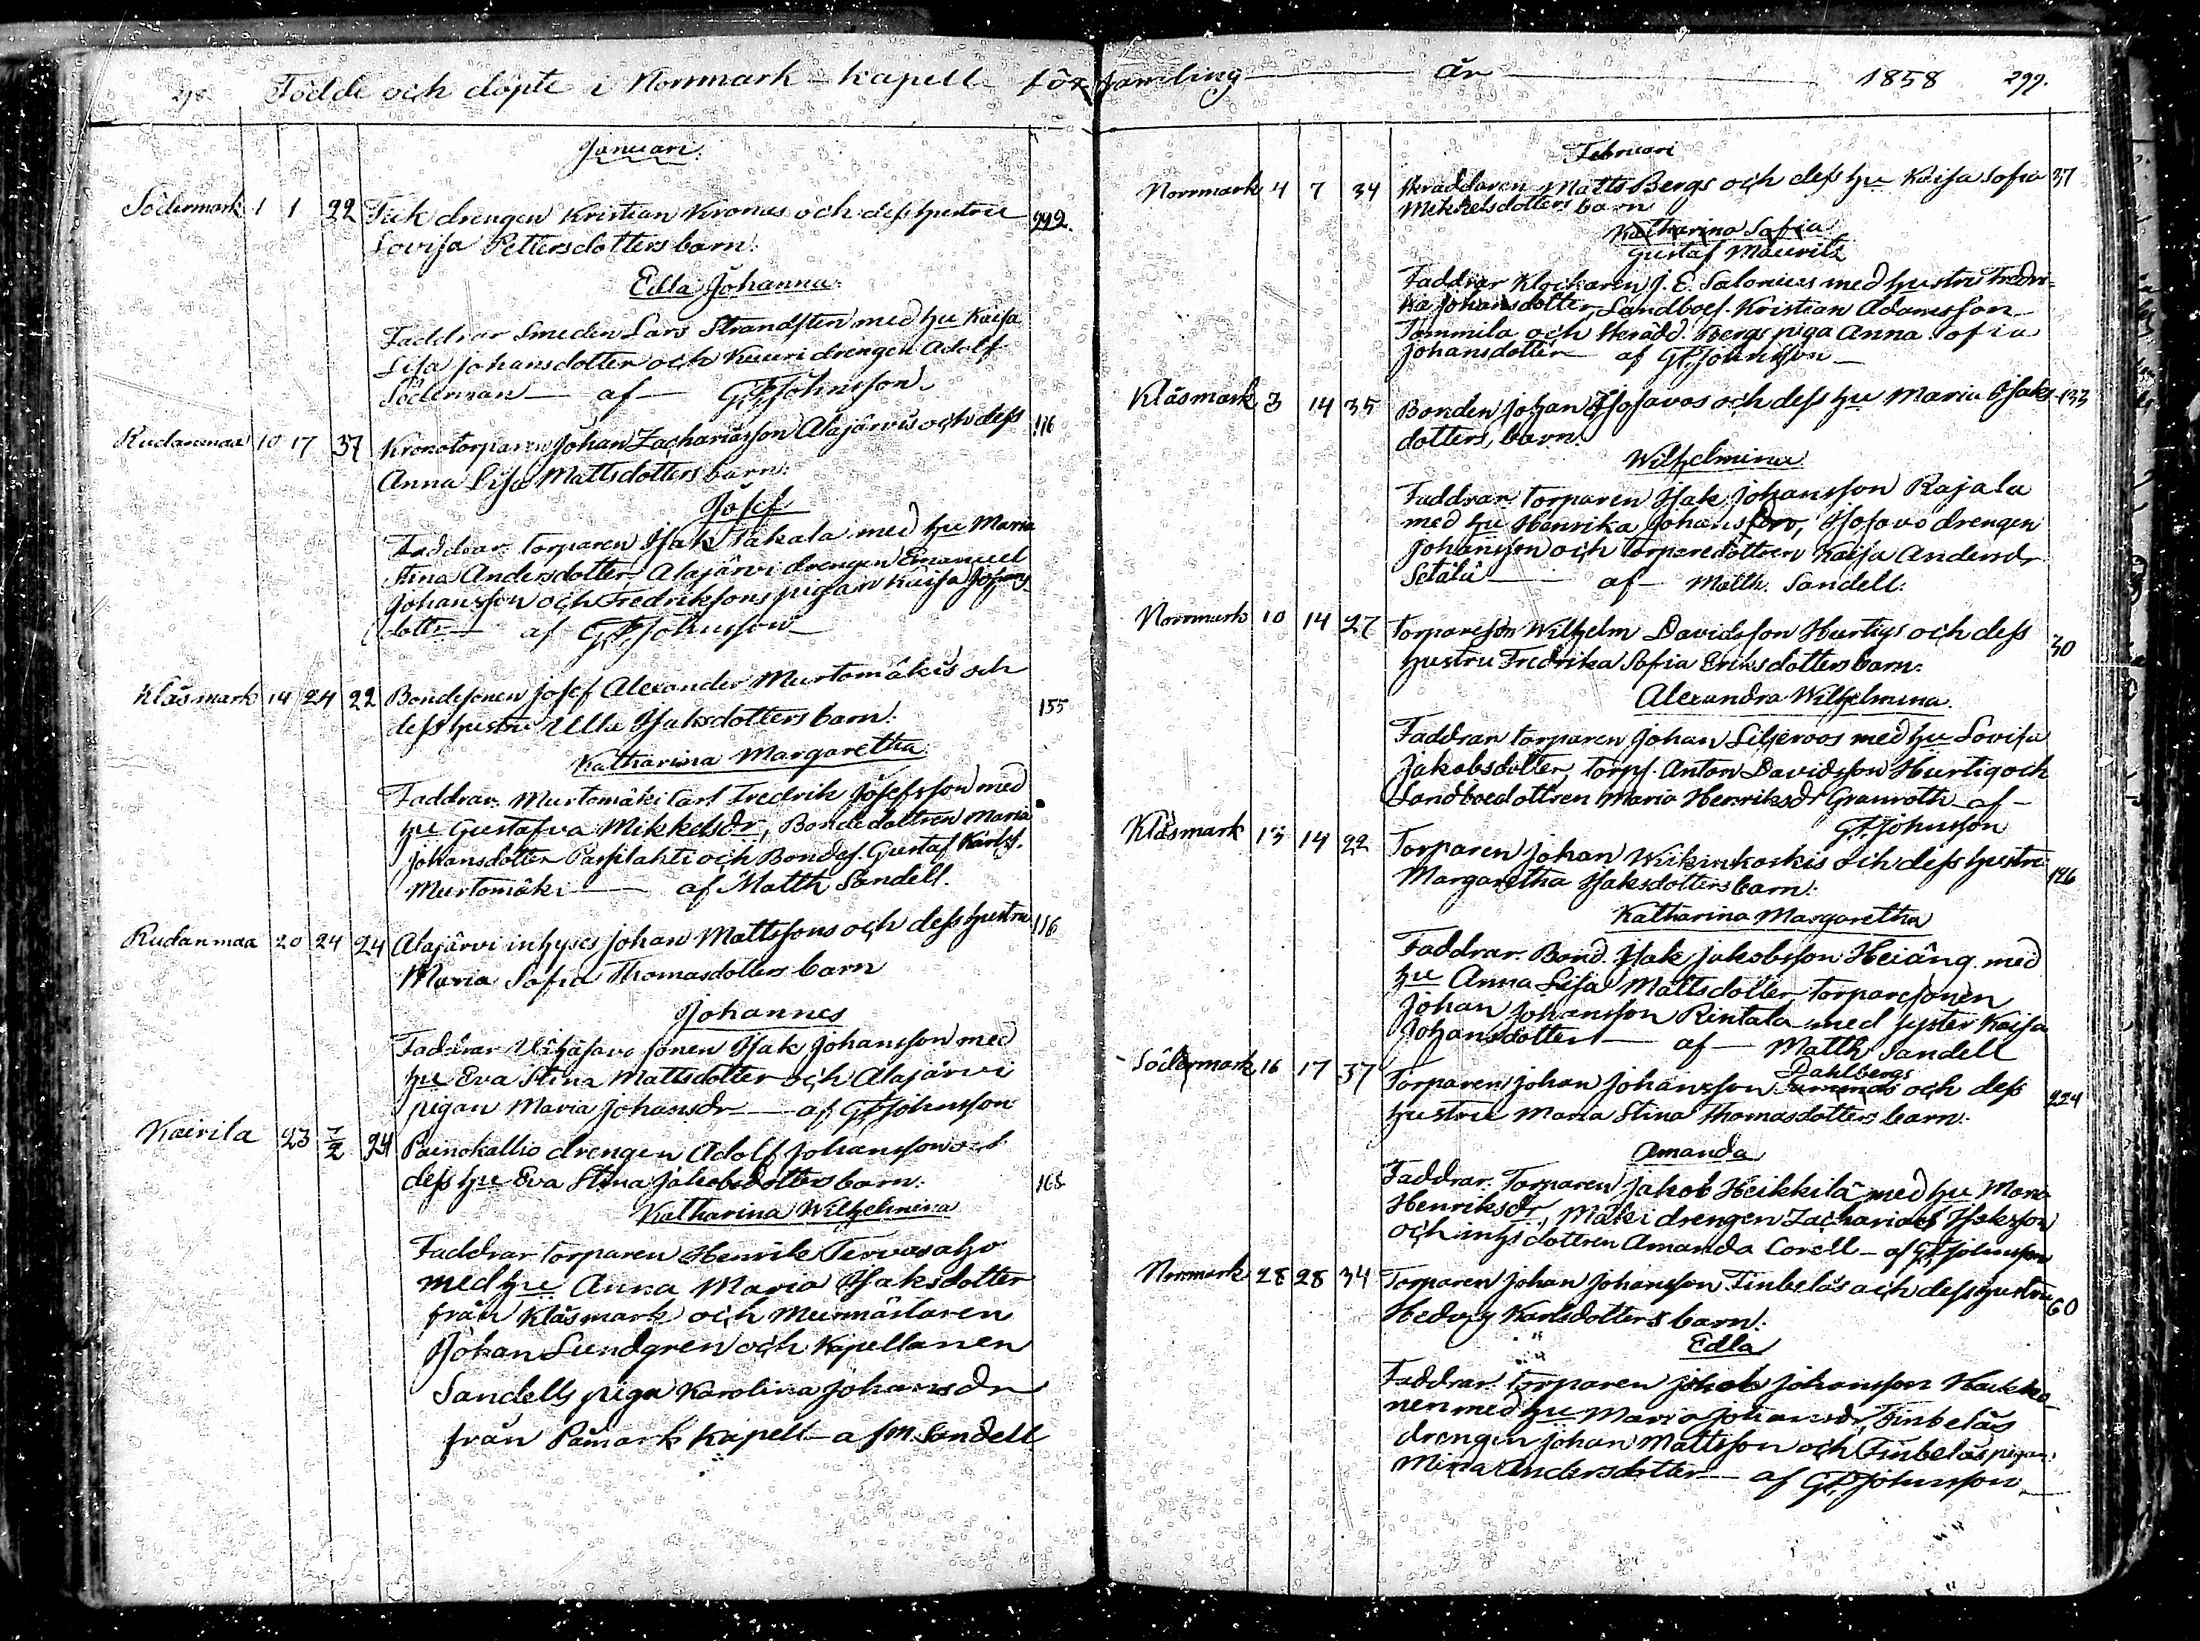 298. Födde och döpte i Norrmark kapell för
Januari.
Södermark 1 1 22 drengen Kristian Kronas och dess hustru 292.
Lovisa Pettersdotters barn.
Edla Johanna.
Faddrar Smeden Lars Strandsten med hu Kaisa
Lisa Johansdotter och drengen Adolf
Söderman — af — G.F. Johnsson.
Rudanmaa 10 17 37 Kronotorparen Johan Zachariasson Alajärvis och dess 116
Anna Lisa Mattsdotters barn.
Josef.
Faddrar torparen Isak Takala med hu Maria
Stina Andersdotter, Alajärvi drengen Emanuel
Johansson och Fredrikssons pigan Kaisa Johans
dotter — af G.F. Johnsson
Klåsmark 14 24 22 Bondesonen Josef Alexander Murtomäkis och 155
dess hustru Ulla Isaksdotters barn.
Katharina Margaretha
Faddrar. Murtomäki Carl Fredrik Josefsson med
hu Gustafva Mikkelsdr, Bondedottren Maria
Johansdotter och Bondes. Gustaf Karlss.
Murtomäki — af Matth Sandell.
Rudanmaa 20 24 24 Alajärvi inhyses Johan Mattssons och dess hustru 116
Maria Sofia Thomasdotters barn
Johannes
Faddrar sonen Isak Johansson med
hu Eva Stina Mattsdotter och Alajärvi
pigan Maria Johansdr — af G.F. Johnsson
Kairila 23 7/2 24 Painokallio drengen Adolf Johanssons och 165
dess hu Eva Stina Jakobsdotters barn.
Katharina Wilhelmina
Faddrar torparen Henrik Tervasaho
med hu Anna Maria Isaksdotter
från Klåsmark och Murmästaren
Johan Lundgren och Kapellanen
Sandells piga Karolina Johansdr
från Påmark kapell — af M. Sandell
samling — År — 1858 299.
Februari
Norrmark 4 7 34 Skräddaren Matts Bergs och dess hu Kaisa Sofia 37
Mikkelsdotters barn
Katharina Sofia
Gustaf Mauritz
Faddrar Klockaren J. E. Salonius med hustru Fredri-
ka Johansdotter, Landboes. Kristian Adamsson
Tommila och Skrädd. Bergs piga Anna Sofia
Johansdotter — af G.F. Johnsson —
Klåsmark 3 14 35 Bonden Johan Isosavos och dess hu Maria Isaks- 133
dotters, barn.
Wilhelmina
Faddrar. torparen Isak Johansson Rajala
med hu Henrika Johansdotr, Isosavo drengen
Johansson och torparedottren Kaisa Andersdr
Setälä — af — Matth. Sandell.
Norrmark 10 14 27 Torparesson Wilhelm Davidsson Hurtigs och dess 30
hustru Fredrika Sofia Eriksdotters barn.
Alexandra Wilhelmina.
Faddrar torparen Johan Liljeroos med hu Lovisa
Jakobsdotter, torps. Anton Davidsson Hurtig och
Landboedottren Maria Henriksdr Granroth af —
G.F. Johnsson
Klåsmark 13 14 22 Torparen Johan Wikinkoskis och dess hustru 146
Margaretha Isaksdotters barn.
Katharina Margaretha
Faddrar. Bond. Isak Jakobsson Heiäng med
hu Anna Lisa Mattsdotter, torparesonen
Johan Johansson Rintala med syster Kaisa
Johansdotter — af — Matth. Sandell
Södermark 16 17 37 Torparen Johan Johansson Dahlbergs och dess 224
hustru Maria Stina Thomasdotters barn.
Amanda
Faddrar. Torparen Jakob Heikkilä med hu Maria
Henriksdr, Mäki drengen Zacharias Isaksson
och inhysdottren Amanda Corell — af G.F. Johnsson
Norrmark 28 28 34 Torparen Johan Johansson Finbeläs och dess hustru 60
Hedvig Karlsdotters barn.
Edla
Faddrar. torparen Jakob Johansson
nen med hu Maria Johansdr, Finbeläs
drengen Johan Mattsson och Finbeläs pigan
Mina Andersdotter — af G.F. Johnsson